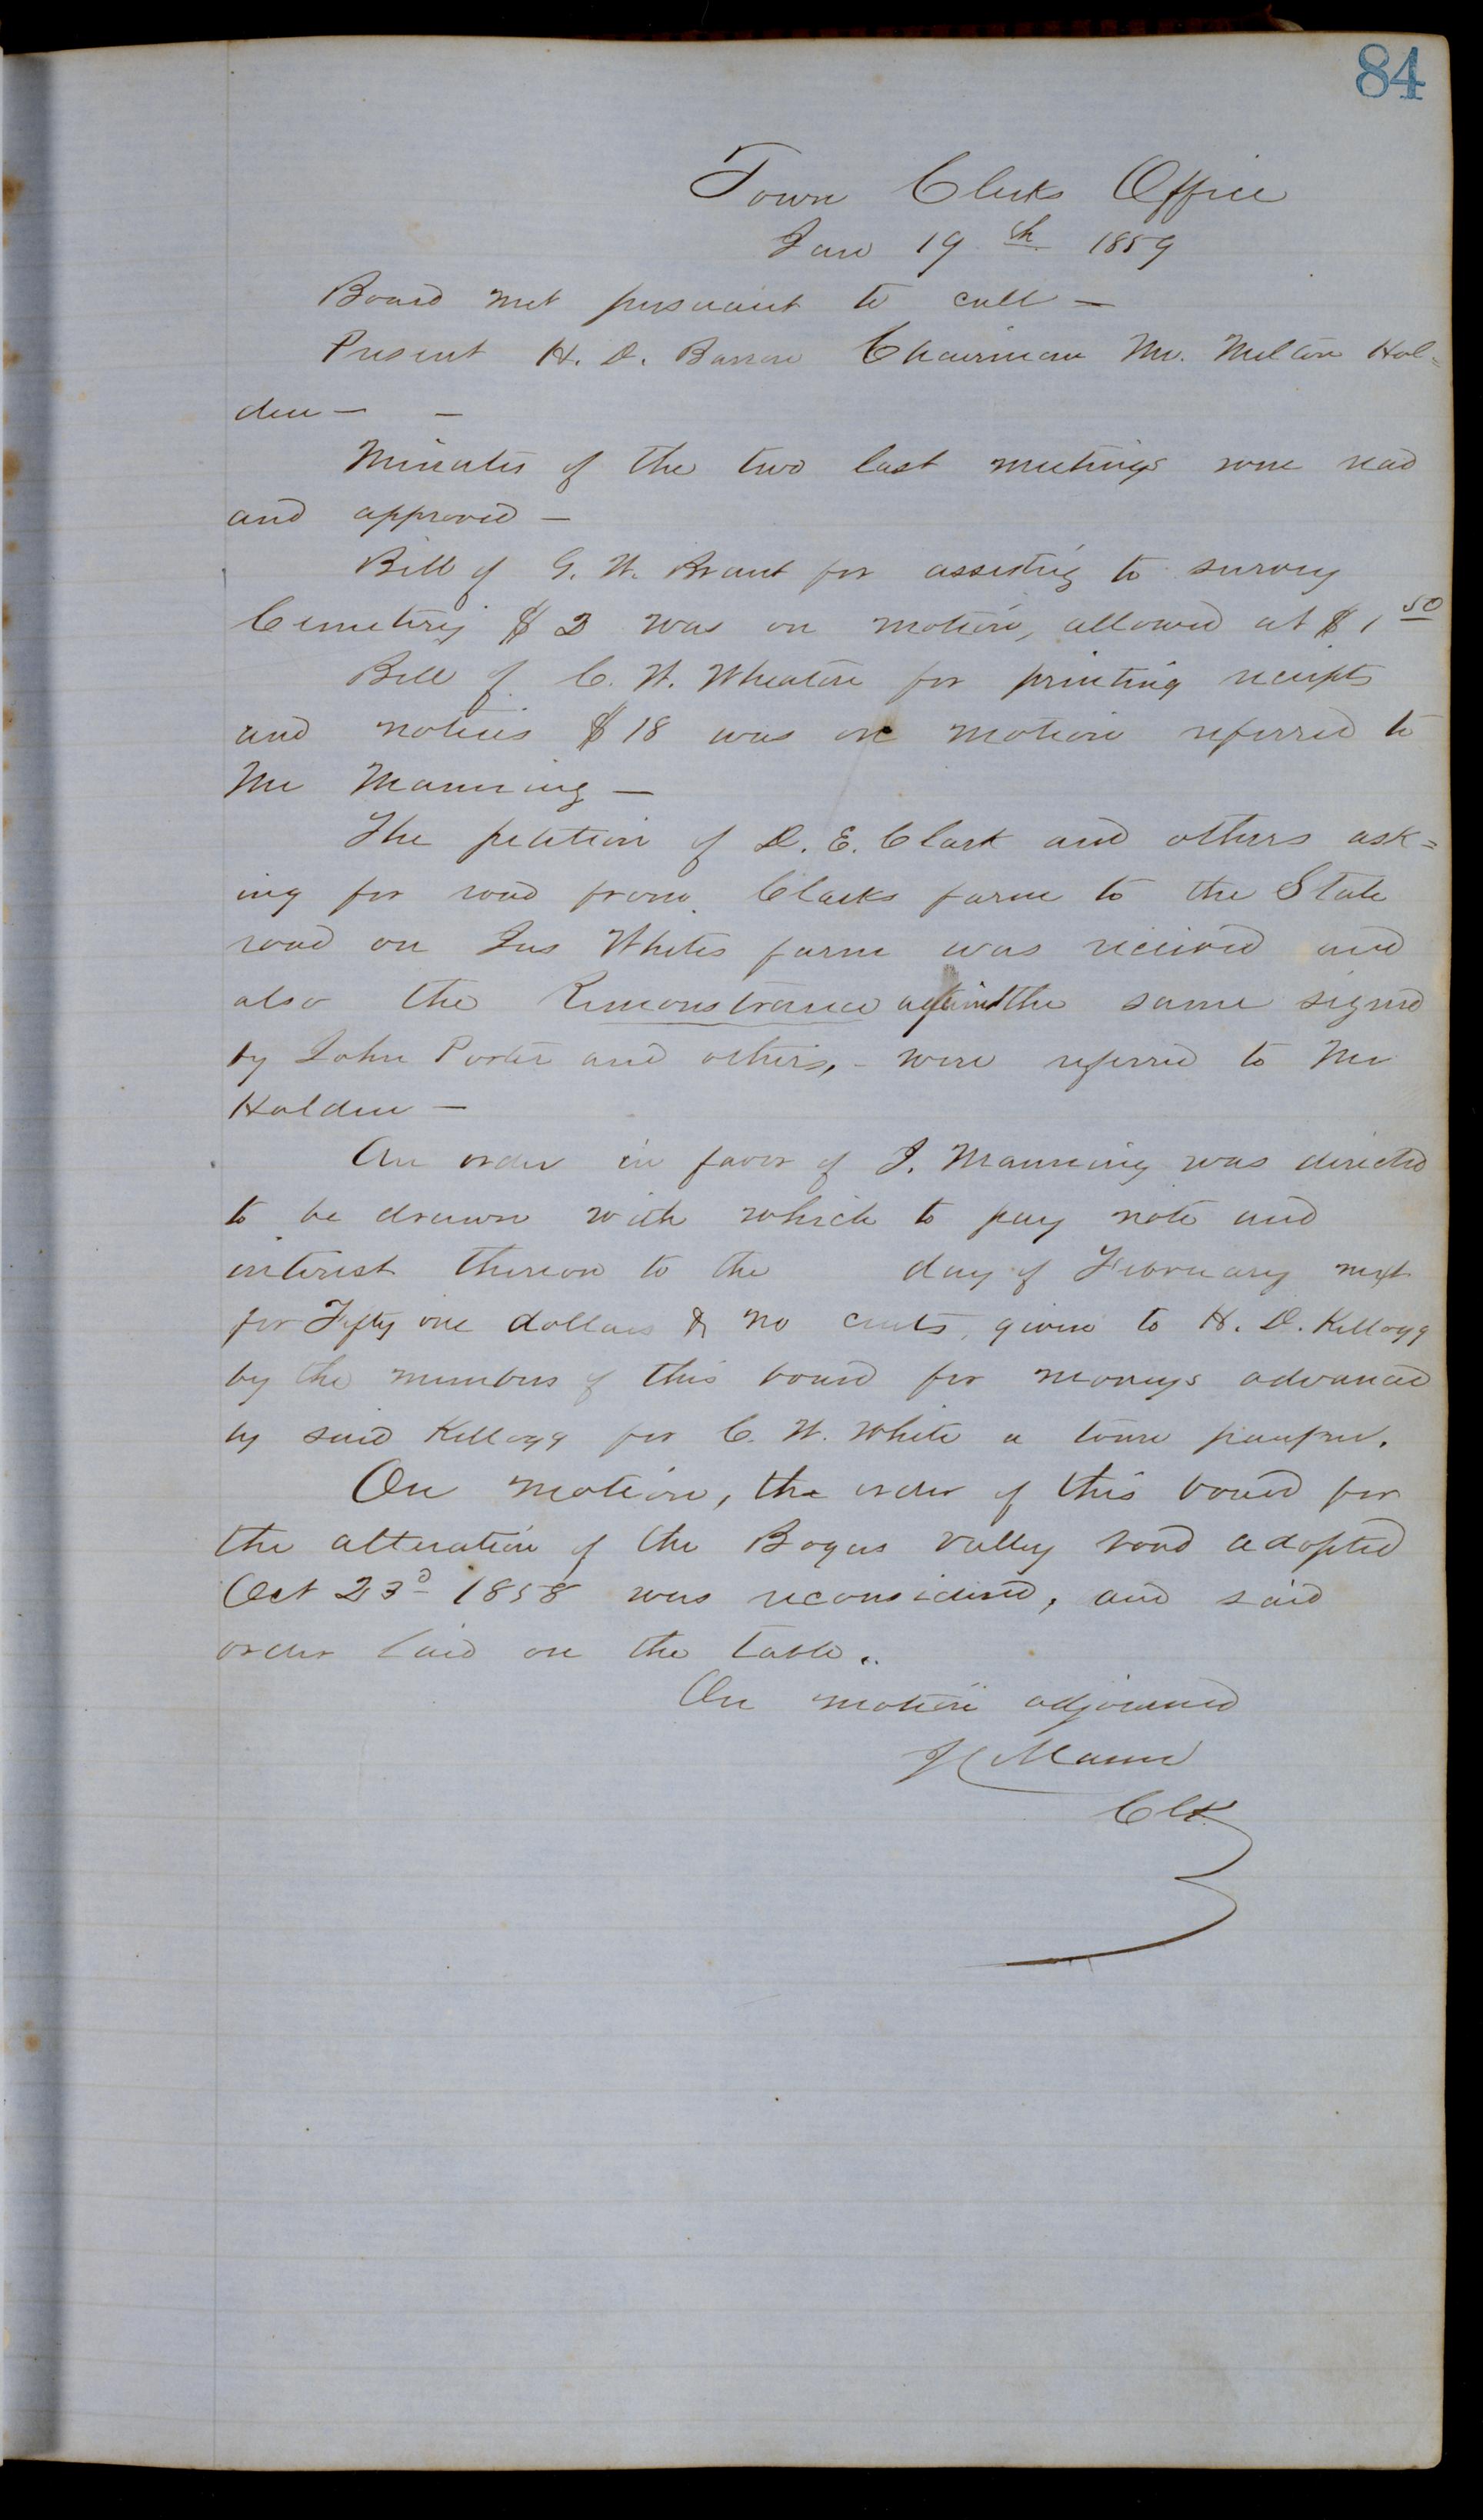 84
Town Clerks Office
Jan 19th 1859
Board met pursuant to call —
Present H. D. Barron Chairman Mr. Milton Hol=
den — —
Minutes of the two last meetings were read
and approved —
Bill of G. W. Brant for assisting to survey
Cemetery $2 was on motion, allowed at $1 50
Bill of C. W. Wheaton for printing receipts
and notices $18 was on motion referred to
Mr Manning —
The petition of D. E. Clark and others ask=
ing for road from Clarks farm to the State
road on Jas Whites farm was received and
also the Remonstrance against the same signed
by John Porter and others, - were referred to Mr
Holden —
An order in favor of J. Manning was directed
to be drawn with which to pay note and
interest thereon to the day of February next
for Fifty one dollars & no cents, given to H. D. Kellogg
by the members of this board for moneys advanced
by said Kellogg for C. W. White a town pauper.
On motion, the order of this board for
the alteration of the Bogus valley road adopted
Oct 23d 1858 was reconsidered, and said
order laid on the table..
On motion adjourned
Mann
Clk